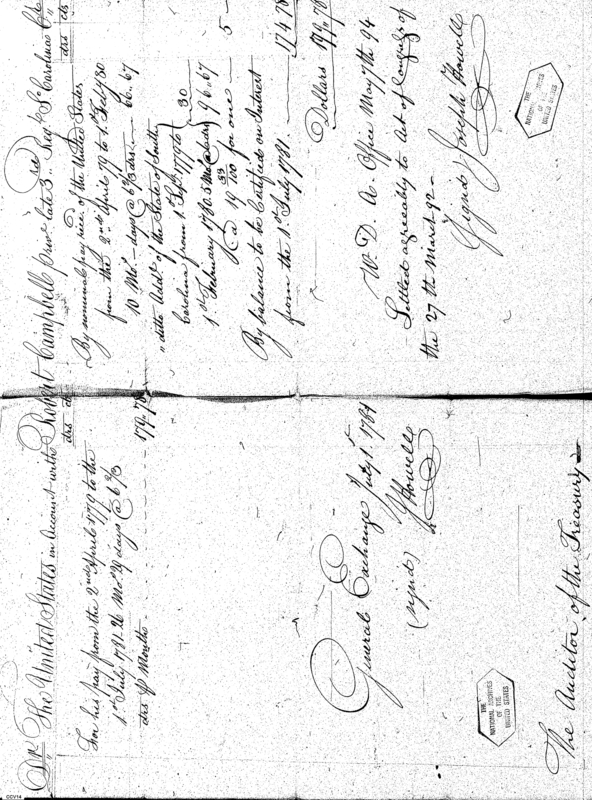 Dr. The United States in Account with Robert Campbell priv. late 3.. Reg. So. Carolinas Cr.
drs
For his pay from the 2nd April 1779 to the
1st July 1781. 26 Mos. 29 days @ 6 2/3
drs p Months - 179.78
General Exchange July 1st 1781
(signd) J Howells
THE
NATIONAL ARCHIVES
OF THE
UNITED STATES
The Auditor of the Treasury
drs
By nominal pay rec. of the United States
from the 2nd April 79 to 1st Feby 80
10 Mos. - days @ 6 2/3 drs. 66.67
" ditto Addl. of the State of South
Carolina from 1st Sept. 1779 to
1st February 1780. 5 Mos @ 6 2/3 30
@ 19 for one 5
By balance to be Certified on Interest
from the 1st July 1781. 174.78
Dollars 179.78
W. D. A. Office May 7th 94
Settled agreeably to Act of Congress of
the 27th March 92 -
Signd Joseph Howells
THE
NATIONAL ARCHIVES
OF THE
UNITED STATES
CCV14